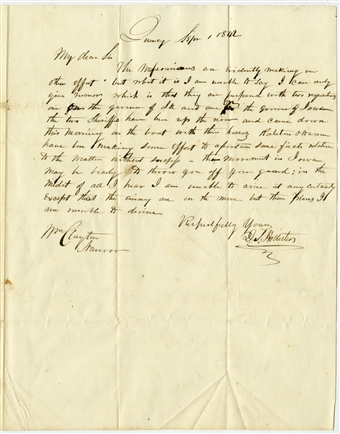 Quincy Sep. 1 1842
My dear Sir
The Missourians are evidently making an
other effort but what it is I am unable to say I can only
give rumor which is that they are prepared with two requisitions
one on the govenor of Ill and one the Govenor of Iowa
the two Sheriffs have been up the river and came down
this morning on the boat with their horses Ralston & Warren
have been making some effort to ascertain some facts relative
to the matter without success – the movement in Iowa
may be to throw you off you guard; in the
midst of all I hear I am unable to arive at any certainty
except that the enimy are on the move but their plans I
am unable to devine
Respectfully Yours
Wm Clayton
Nauvoo